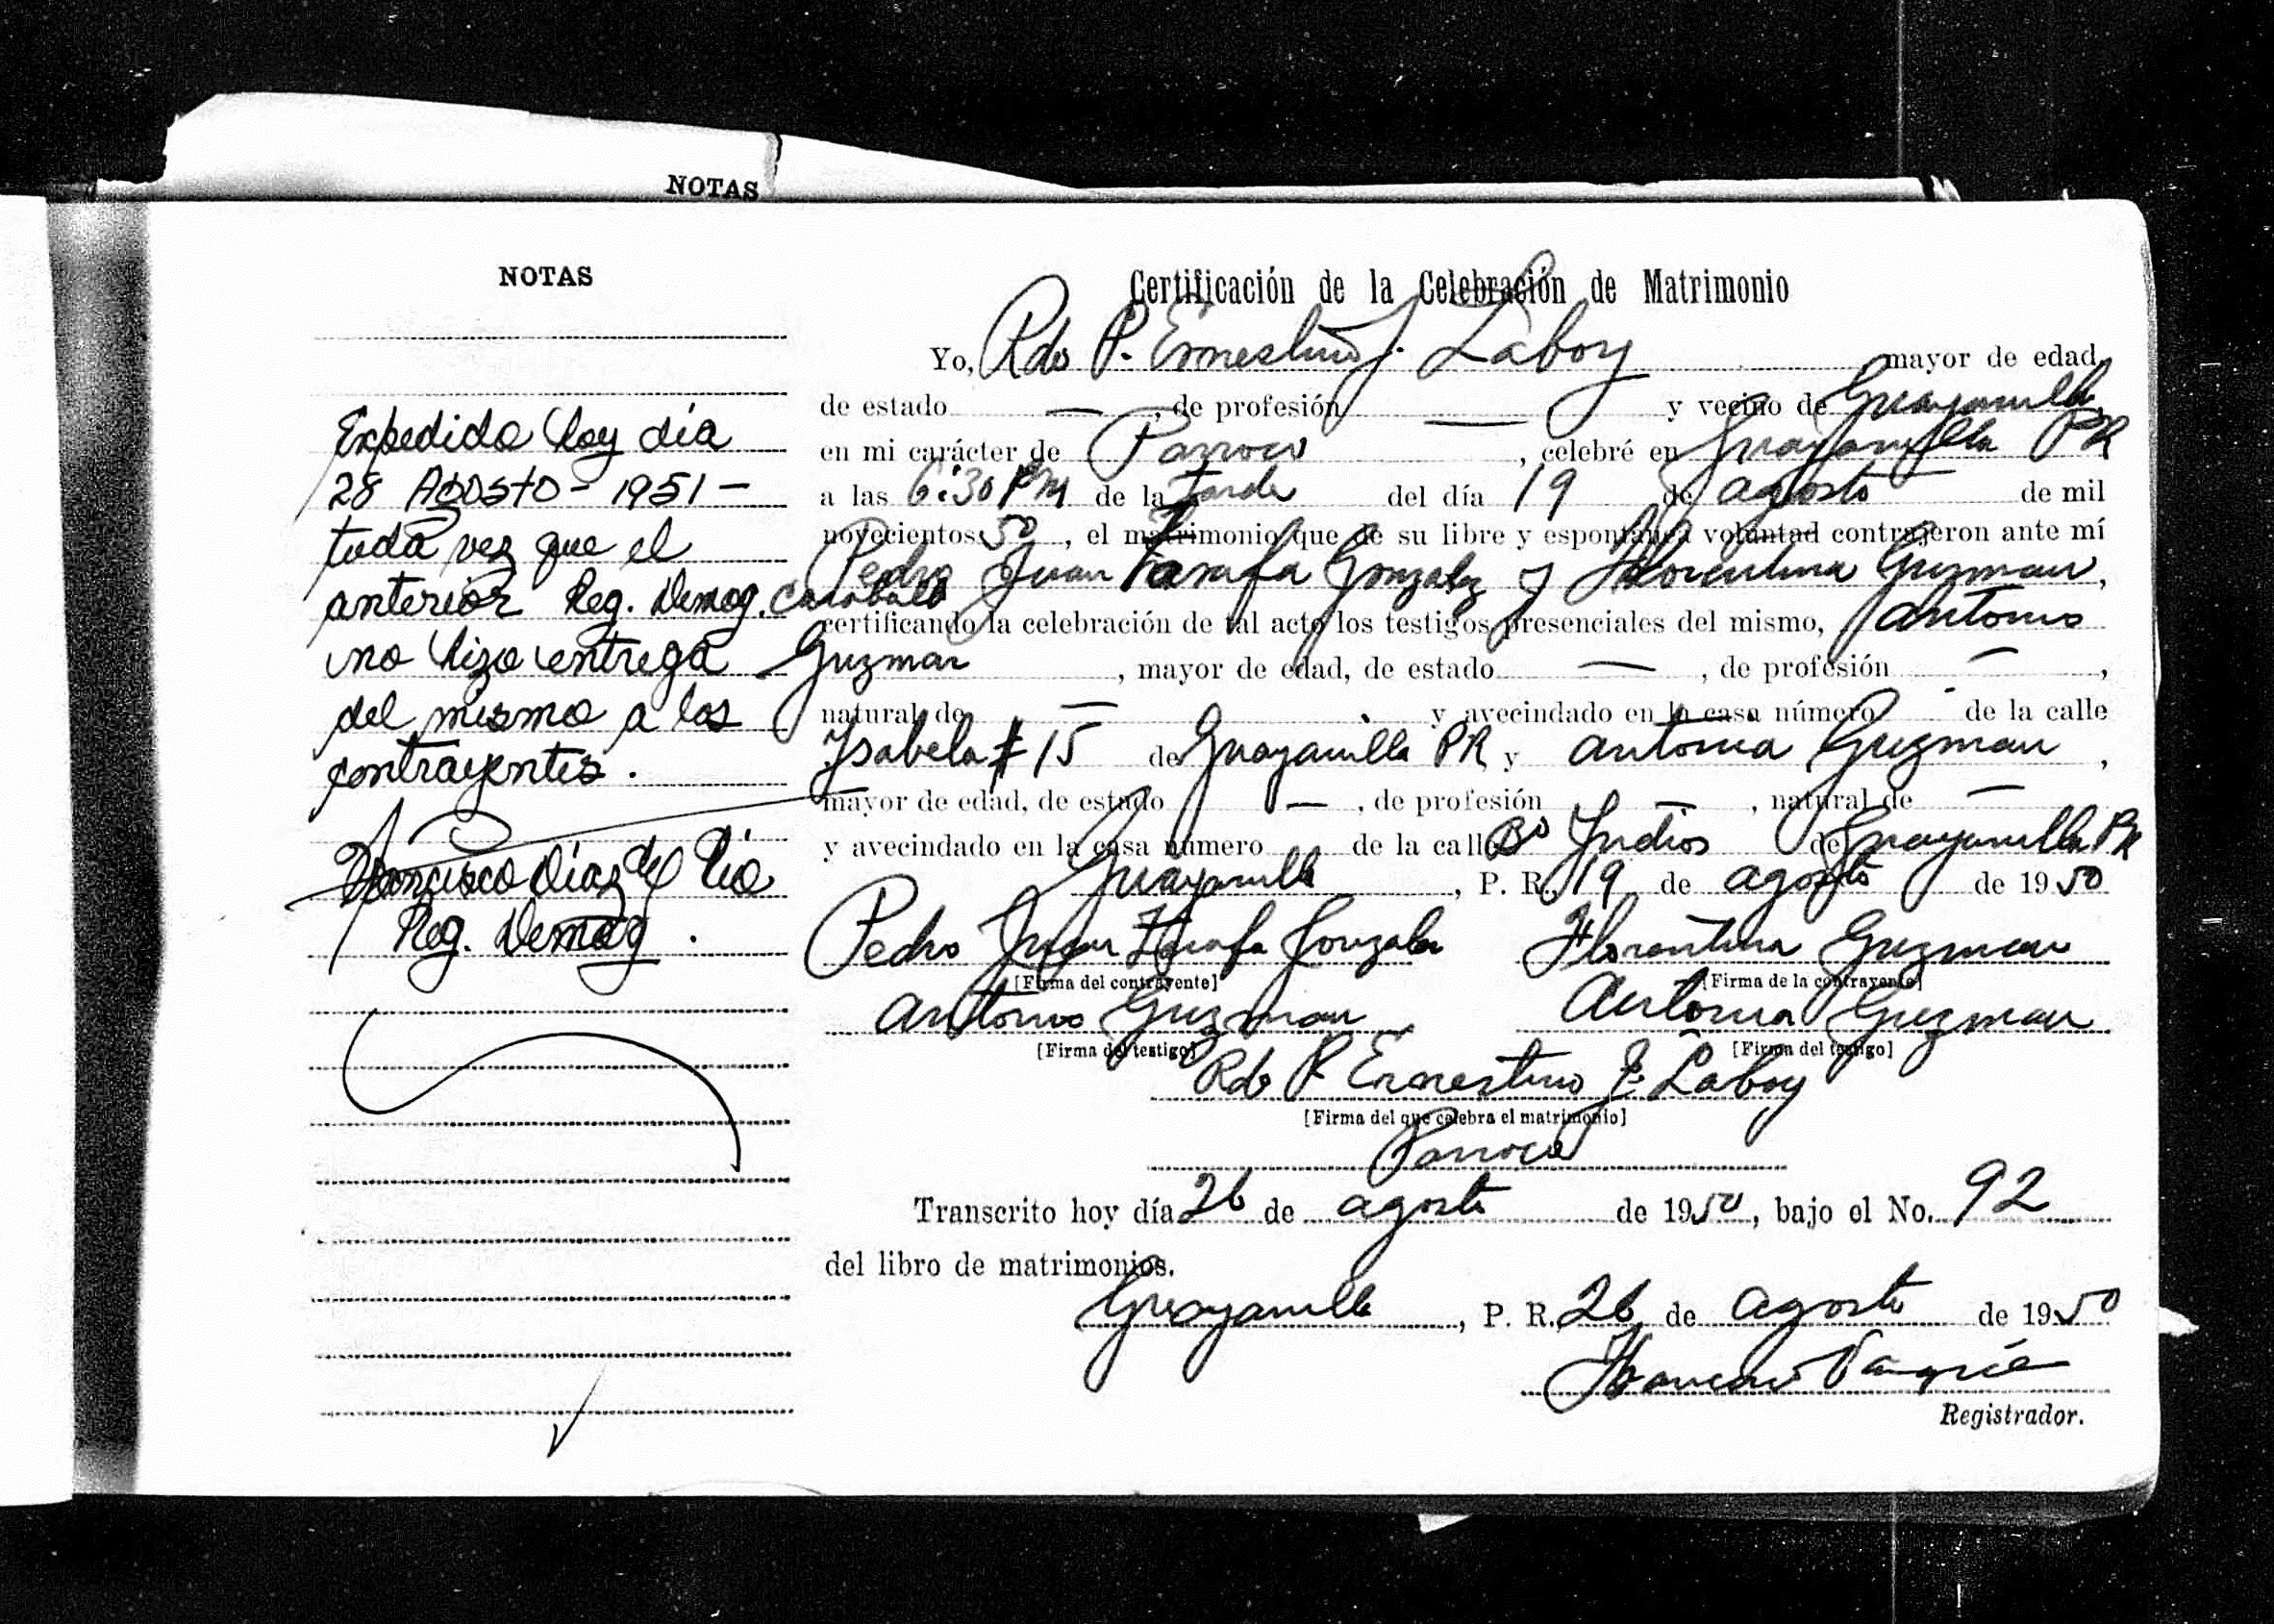 NOTAS
NOTAS
Expedido hoy día
28 AGOSTO - 1951 -
toda vez que el
anterior Reg. Demog.
no hizo entrega
del mismo a los
contrayentes.
Francisco Díaz del Río
Reg. Demog.
Certificación de la Celebración de Matrimonio
Yo, Rdo P. Ernestino J. Laboy mayor de edad,
de estado — , de profesión — y vecino de Guayanilla
en mi carácter de Parroco , celebré en Guayanilla PR
a las 6:30 PM de la tarde del día 19 de agosto de mil
novecientos 50 , el matrimonio que de su libre y espontánea voluntad contrajeron ante mí
Pedro Juan Tarafa Gonzalez y Florentina Guzman
Caraballo ,
certificando la celebración de tal acto los testigos presenciales del mismo, Antonio
Guzman , mayor de edad, de estado — , de profesión — ,
natural de — y avecindado en la casa número de la calle
Isabela # 15 de Guayanilla PR y Antonia Guzman ,
mayor de edad, de estado — , de profesión — , natural de —
y avecindado en la casa número de la calle Bo Indios de Guayanilla PR
Guayanilla , P. R. 19 de agosto de 1950
Pedro Juan Tarafa Gonzalez Florentina Guzman
[Firma del contrayente] [Firma de la contrayente]
Antonio Guzman Antonia Guzman
[Firma del testigo] [Firma del testigo]
Rdo P. Ernestino J. Laboy
[Firma del que celebra el matrimonio]
Parroco
Transcrito hoy día 26 de agosto de 1950, bajo el No. 92
del libro de matrimonios.
Guayanilla , P. R. 26 de agosto de 1950
Registrador.